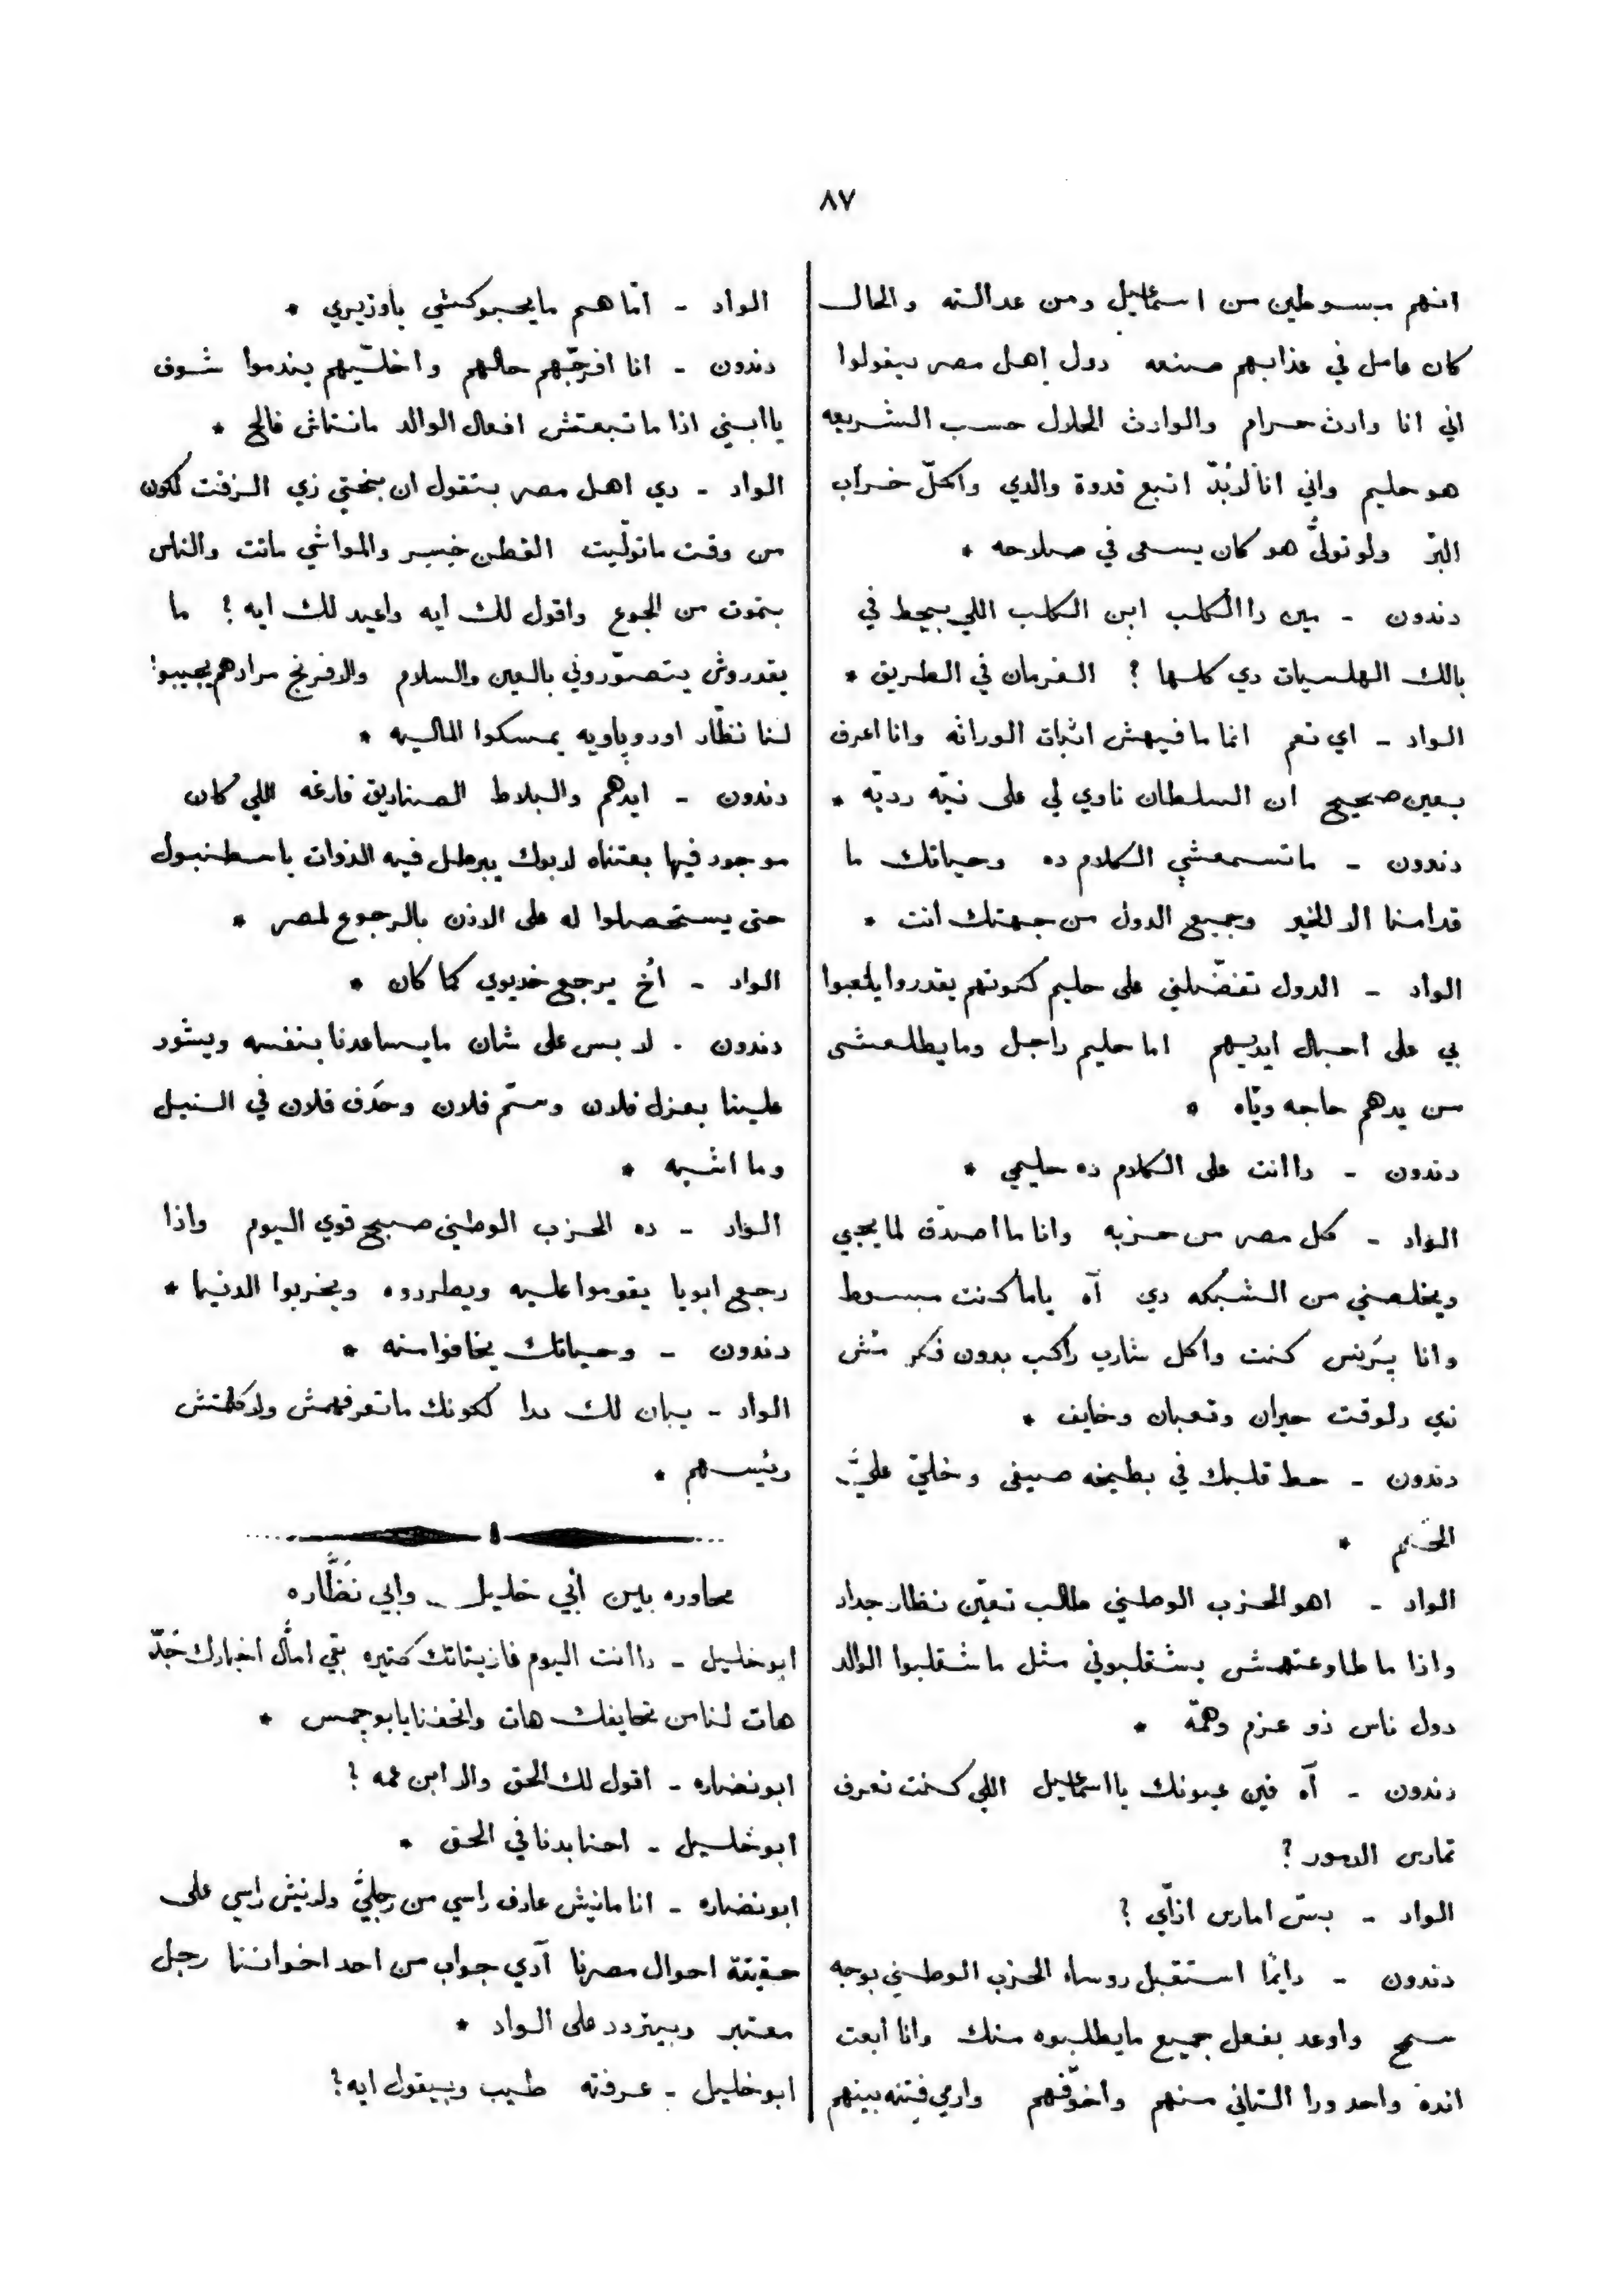 ٨٧
انهم مبسوطين من اسماعيل ومن عدالته والحال
كان عامل في عذابهم صنعه دول اهل مصر بيقولوا
اني انا وارث حرام والوارث الحلال حسب الشريعه
هو حليم واني انا لابُدّ اتبع قدوة والدي واكمّل خراب
البرّ ولو تولىّ هو كان يسعى في صلاحه *
دندون - مين دا الكلب ابن الكلب اللي بيحط في
بالك الهلسيات دي كلها ؟ الفرمان في الطريق *
الواد - اي نعم انما ما فيهش اثبات الوراثه وانا اعرف
بعين صحيح ان السلطان ناوي لي على نيّه رديّه *
دندون - ما تسمعشي الكلام ده وحياتك ما
قدامنا الا الخير وجميع الدول من جهتك انت *
الواد - الدول تفضّلني على حليم كونهم يقدروا يلعبوا
بي على احبال ايديهم اما حليم راجل وما يطلعشى
من يدهم حاجه ويّاه *
دندون - دا انت على الكلام ده حليمي *
الواد - كل مصر من حزبه وانا ما اصدّق لما يجي
ويخلصني من الشبكه دي آه ياما كنت مبسوط
وانا پرنس كنت واكل شارب راكب بدون فكر مُش
زي دلوقت حيران وتعبان وخايف *
دندون - حط قلبك في بطيخه صيفى وخلىّ علىَّ
الختم *
الواد - اهو الحزب الوطني طالب تعيّن نظار جداد
واذا ما طاوعتهمش يشقلبوني مثل ما شقلبوا الوالد
دول ناس ذو عزم وهمّة *
دندون - آه فين عيونك يا اسماعيل اللي كنت تعرف
تمارس الامور ؟
الواد - بسّ امارس ازّاي ؟
دندون - دايمًا استقبل روساء الحزب الوطني بوجه
سمح واوعد بفعل جميع ما يطلبوه منك وانا ابعت
انده واحد ورا التاني منهم واخوّفهم وارمي فتنه بينهم
الواد - امّا هم ما يحبوكشي يا وزيري *
دندون - انا افرجّهم حالهم واخلّيهم يندموا شوف
يا ابني اذا ما تبعتش افعال الوالد مانتاش فالح *
الواد - دي اهل مصر بتقول ان بختي زي الزفت لكون
من وقت ما تولّيت القطن خسر والمواشي ماتت والناس
بتموت من الجوع واقول لك ايه واعيد لك ايه ؟ ما
يقدروش يتصوّروني بالعين والسلام والافرنج مرادهم يجيبوا
لنا نظّار اوروپاويه يمسكوا الماليه *
دندون - ايدهم والبلاط الصناديق فارغه اللي كان
موجود فيها بعتناه لابوك يبرطل فيه الذوات باسطنبول
حتى يستحصلوا له على الاذن بالرجوع لمصر *
الواد - أخ يرجع خديوي كما كان *
دندون - لا بس على شان ما يساعدنا بنفسه ويشور
علينا بعزل فلان وسمّ فلان وحدّف فلان في النيل
وما اشبه *
الواد - ده الحزب الوطني صبح قوي اليوم واذا
رجع ابويا يقوموا عليه ويطردوه ويخربوا الدنيا *
دندون - وحياتك يخافوا منه *
الواد - يبان لك لكونك ما تعرفهمش ولا كلمتش
ريئسهم *
محاوره بين أبي خليل وابي نَظَّاره
ابو خليل - دا انت اليوم غازيتاتك كتيره بقي امّال اخبارك جَدّ
هات لنا من تحايفك هات واتحفنا يابو جمس *
ابو نضاره - اقول لك الحق والا ابن عمه ؟
ابو خليل - احنا بدنا في الحق *
ابو نضاره - انا مانيش عارف راسي من رجليَّ ولانيش راسي على
حقيقة احوال مصرنا آدي جواب من احد اخواننا رجل
معتبر وبيتردد على الواد *
ابو خليل - عرفته طيب وبيقول ايه ؟